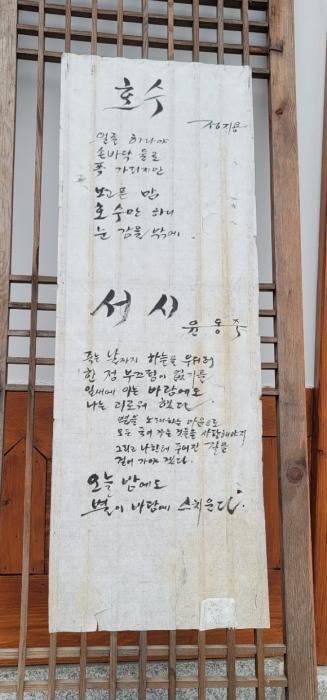 호수
정지용
얼골 하나야
손바닥 둘로
폭 가리지만
보고픈 맘
호수만 하니
눈 감을 밖에.
서시
윤동주
죽는 날까지 하늘을 우러러
한 점 부끄럼이 없기를
잎새에 이는 바람에도
나는 괴로워 했다
별을 노래하는 마음으로
모든 죽어 가는 것들을 사랑해야지
그리고 나한테 주어진 길을
걸어 가야 겠다.
오늘 밤에도
별이 바람에 스치운다.